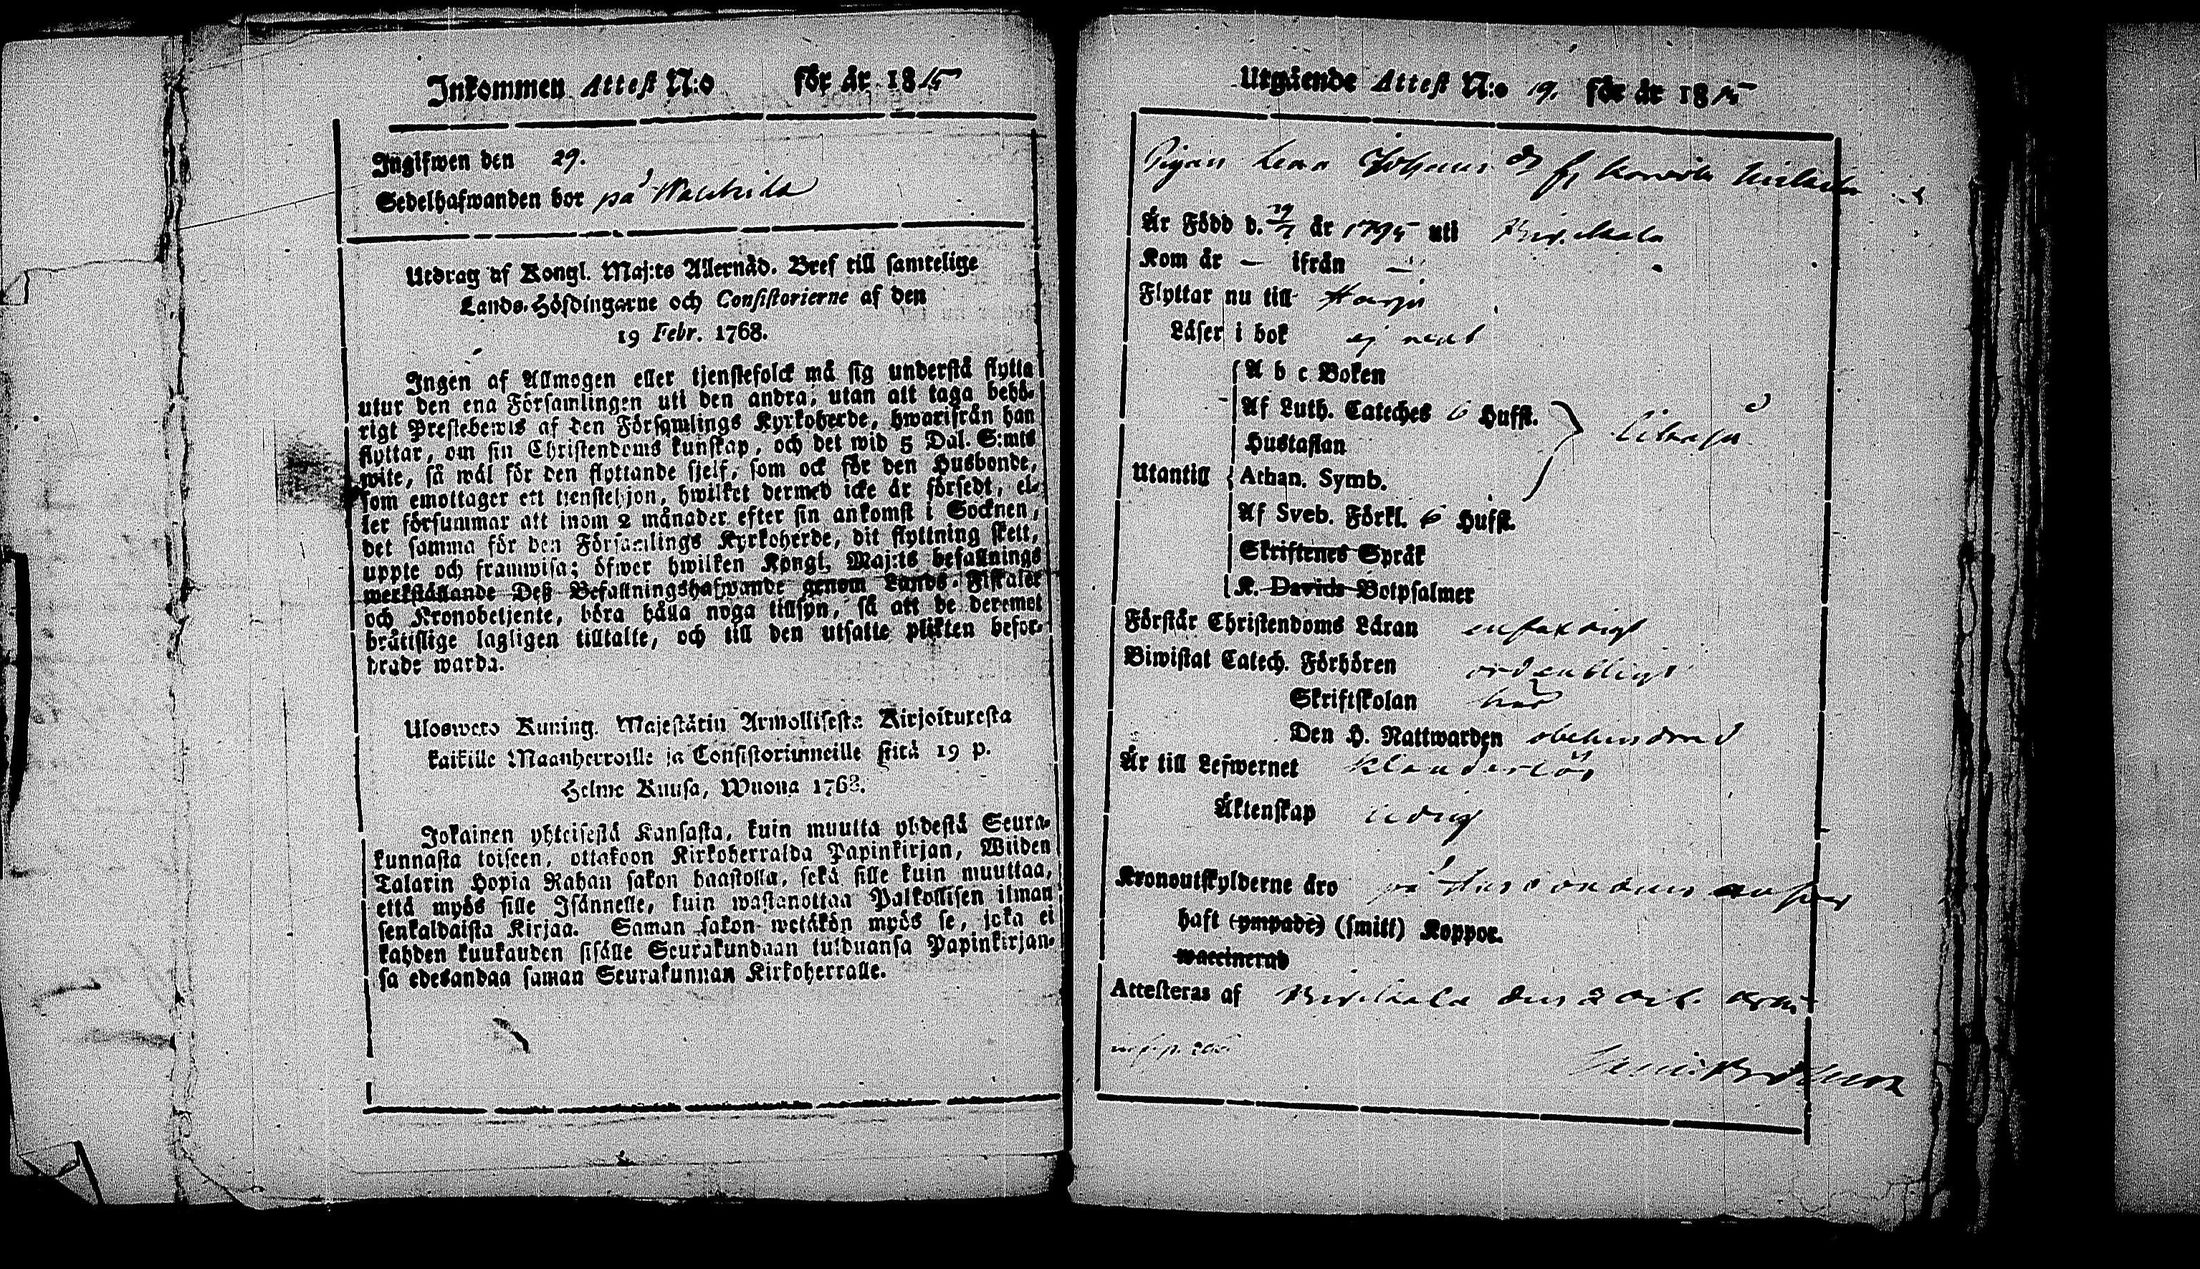 Inkommen Attest N:o för år 1815
Ingifwen den 29.
Sedelhafwanden bor på
Utdrag af Kongl. Maj:ts Allernåd. Bref till samtelige
Lands-Höfdingarne och Consistorierne af den
19 Febr. 1768.
Ingen af Allmogen eller tjenstefolck må sig understå flytta
utur den ena Församlingen uti den andra; utan att taga behö-
rigt Prestebewis af den Församlings Kyrkoherde, hwarifrån han
flyttar, om sin Christendoms kunskap, och det wid 5 Dal. S:mts
wite, så wäl för den flyttande sjelf, som ock för den Husbonde,
som emottager ett tjenstehjon, hwilket dermed icke är försedt, el-
ler försummar att inom 2 månader efter sin ankomst i Socknen,
det samma för den Församlings Kyrkoherde, dit flyttning skett,
uppte och framwisa; öfwer hwilken Kongl. Maj:ts befallnings
werkställande Deß Befallningshafwande genom Lands-Fiskaler
och Kronobetjente, böra hålla noga tillsyn, så att de deremot
bråtislige lagligen tilltalte, och till den utsatte plikten befor-
drade warda.
Ulosweto Kuning. Majestätin Armollisesta Kirjoituresta
kaikille Maanherroille ja Consistoriumneille siitä 19 p.
Helme Kuusa, Wuona 1768.
Jokainen yhteisestä Kansasta, kuin muutta yhdestä Seura-
kunnasta toiseen, ottakoon Kirkoherralda Papinkirjan, Wiiden
Talarin Hopia Rahan sakon haastolla, sekä sille kuin muuttaa,
että myös sille Isännelle, kuin wastanottaa Palkollisen ilman
senkaldaista Kirjaa. Saman sakon wetäkön myös se, joka ei
kahden kuukauden sisälle Seurakundaan tulduansa Papinkirjan-
sa edesandaa saman Seurakunnan Kirkoherralle.
Utgående Attest N:o 19. för år 1815
Pigan Lena Johans dr
Är Född d. 29/7 år 1795 uti Birckala
Kom år — ifrån —
Flyttar nu till
Läser i bok ej rent
A b c Boken
Af Luth. Cateches 6 Hufst.
Hustaflan
Utantill
Athan. Symb.
Af Sveb. Förkl. 6 Hufst.
Skriftenes Språk
K. Davids Botpsalmer
Förstår Christendoms Läran enfaldigt
Biwistat Catech. Förhören ordentligt
Skriftskolan
Den H. Nattwarden obehindrad
Är till Lefwernet klanderlös
Äktenskap ledig
Kronoutskylderne äro på Husbondens answar
haft (ympade) (smitt) Koppor.
waccinerad
Attesteras af Birckala den 2